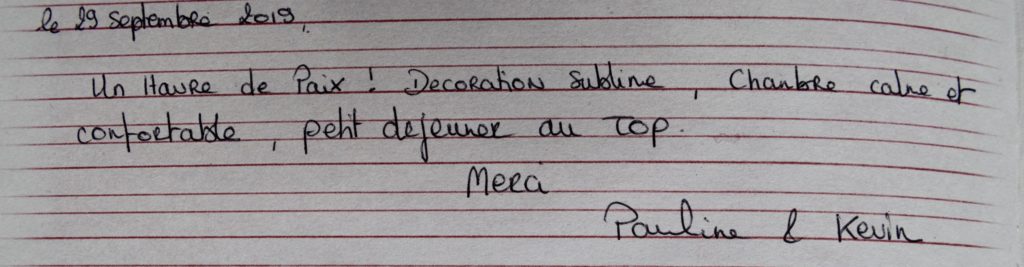 le 29 septembre 2019,
Un Havre de Paix ! Decoration sublime, Chambre calme et
confortable, petit dejeuner au TOP.
Merci
Pauline & Kevin